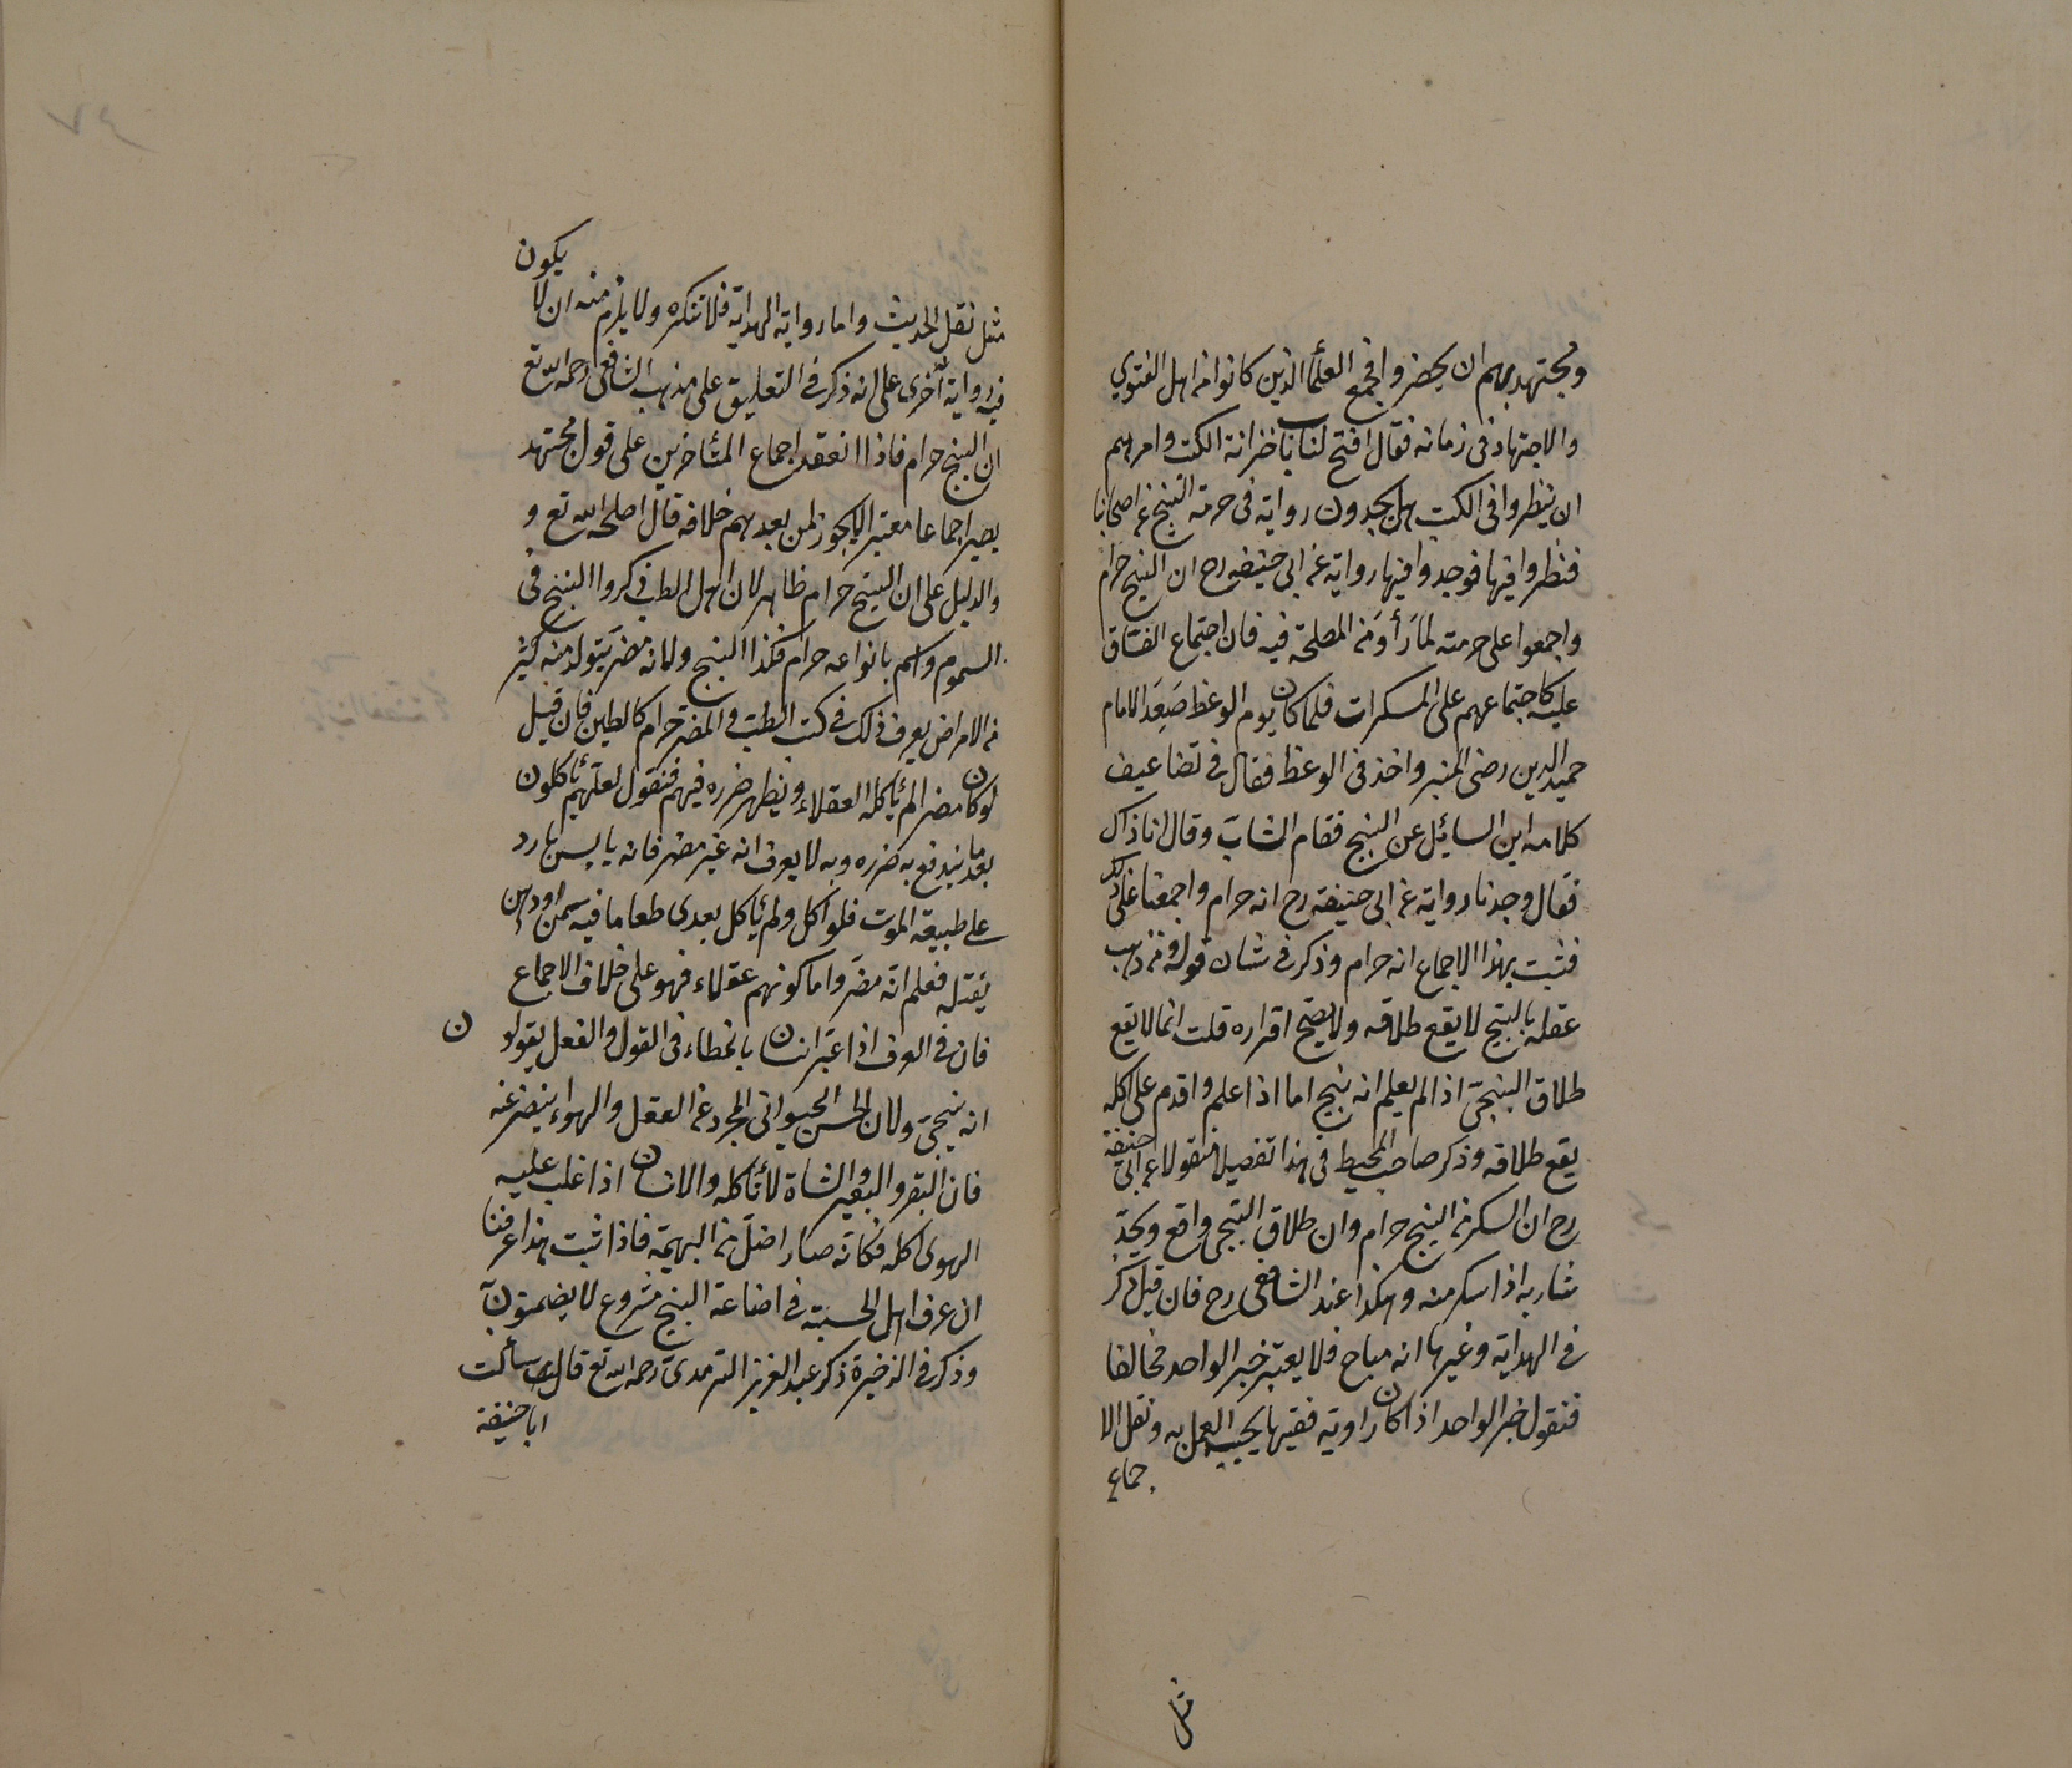 ومجتهديهم ان يحضروا فجمع العلمأ الذين كانوا من اهل الفتوي
والاجتهاد في زمانه فقال افتح لنا باب خزانة الكتب وامرهم
ان ينظروا في الكتب هل يجدون رواية في حرمة البنج عن اصحابنا
فنظروا فيها فوجدوا فيها رواية عن ابي حنيفه رح ان البنج حرام
واجمعوا على حرمته لما رأوا من المصلحة فيه فان اجتماع الفساق
عليه كاجتماعهم على المسكرات فلما كان يوم الوعظ صَعِدَ الامام
حميد الدين رضى المنبر واخذ في الوعظ فقال في تضاعيف
كلامه اين السايُل عن البنج فقام الشابّ وقال انا ذاك
فقال وجدنا رواية عن ابي حنيفة رح انه حرام واجمعنا على ذلك
فثبت بهذا الاجماع انه حرام وذكر في شان قوله من ذهب
عقله بالبنج لا يقع طلاقه ولا يصح اقراره قلت انما لا يقع
طلاق البنجىّ اذا لم يعلم انه بنج اما اذا علم واقدم على اكله
يقع طلاقه وذكر صاحب المحيط في هذا تفصيلا منقولا عن ابي حنيفة
رح ان السكر من البنج حرام وان طلاق البنجى واقع ويحدّ
شاربه اذا سكر منه وهكذا عند الشافعي رح فان قيل ذكر
في الهداية وغيرها انه مباح فلا يعتبر خبر الواحد مخالفا
فنقول خبر الواحد اذا كان راويه فقيها يجب العمل به ونقل الا
جماع
مثل
يكون
مثل نقل الحديث واما رواية الهداية فلا تنكره ولا يلزم منه ان لا
فيه رواية أخرى على انه ذكر في التعليق على مذهب الشافعى رحمه الله تع
ان البنج حرام فاذا انعقد اجماع المتأخرين على قول مجتهد
يصير اجماعا معتبرا لا يجوز لمن بعدهم خلافه قال اصلحه الله تع و
والدليل على ان البنج حرام ظاهر لان اهل الطب ذكروا البنج في
السموم والسم بانواعه حرام فكذا البنج ولانه مضر يتولد منه كثير
من الامراض يعرف ذلك في كتب الطب والمضر حرام كالطين فان قيل
لوكان مضرا لم يأكله العقلاء ويظهر ضرره فيهم فنقول لعلهم يأكلون
بعد ما يندفع به ضرره وبه لا يعرف انه غير مضر فانه يابس بارد
على طبيعة الموت فلو اكل ولم يأكل بعدى طعاما فيه سمن او دهن
يقتله فعلم انه مضر واما كونهم عقلاء فهو على خلاف الاجماع
فان في العرف اذا عبّر انسان بالخطاء في القول والفعل يقولون
انه بنجىّ ولان الحس الحيوانى المجرد عن العقل والهواء ينفر عنه
فان البقر والبعير والشاة لا تأكله والانسان اذا غلب عليه
الهوى اكله فكانّه صار اضلّ من البهيمة فاذا ثبت هذا عرفنا
ان عرف اهل الحسبة في اضاعة البنج مشروع لا يضمنون
وذكر في الذخيرة ذكر عبد العزيز الترمدى رحمه الله تع قال سألت
ابا حنيفة